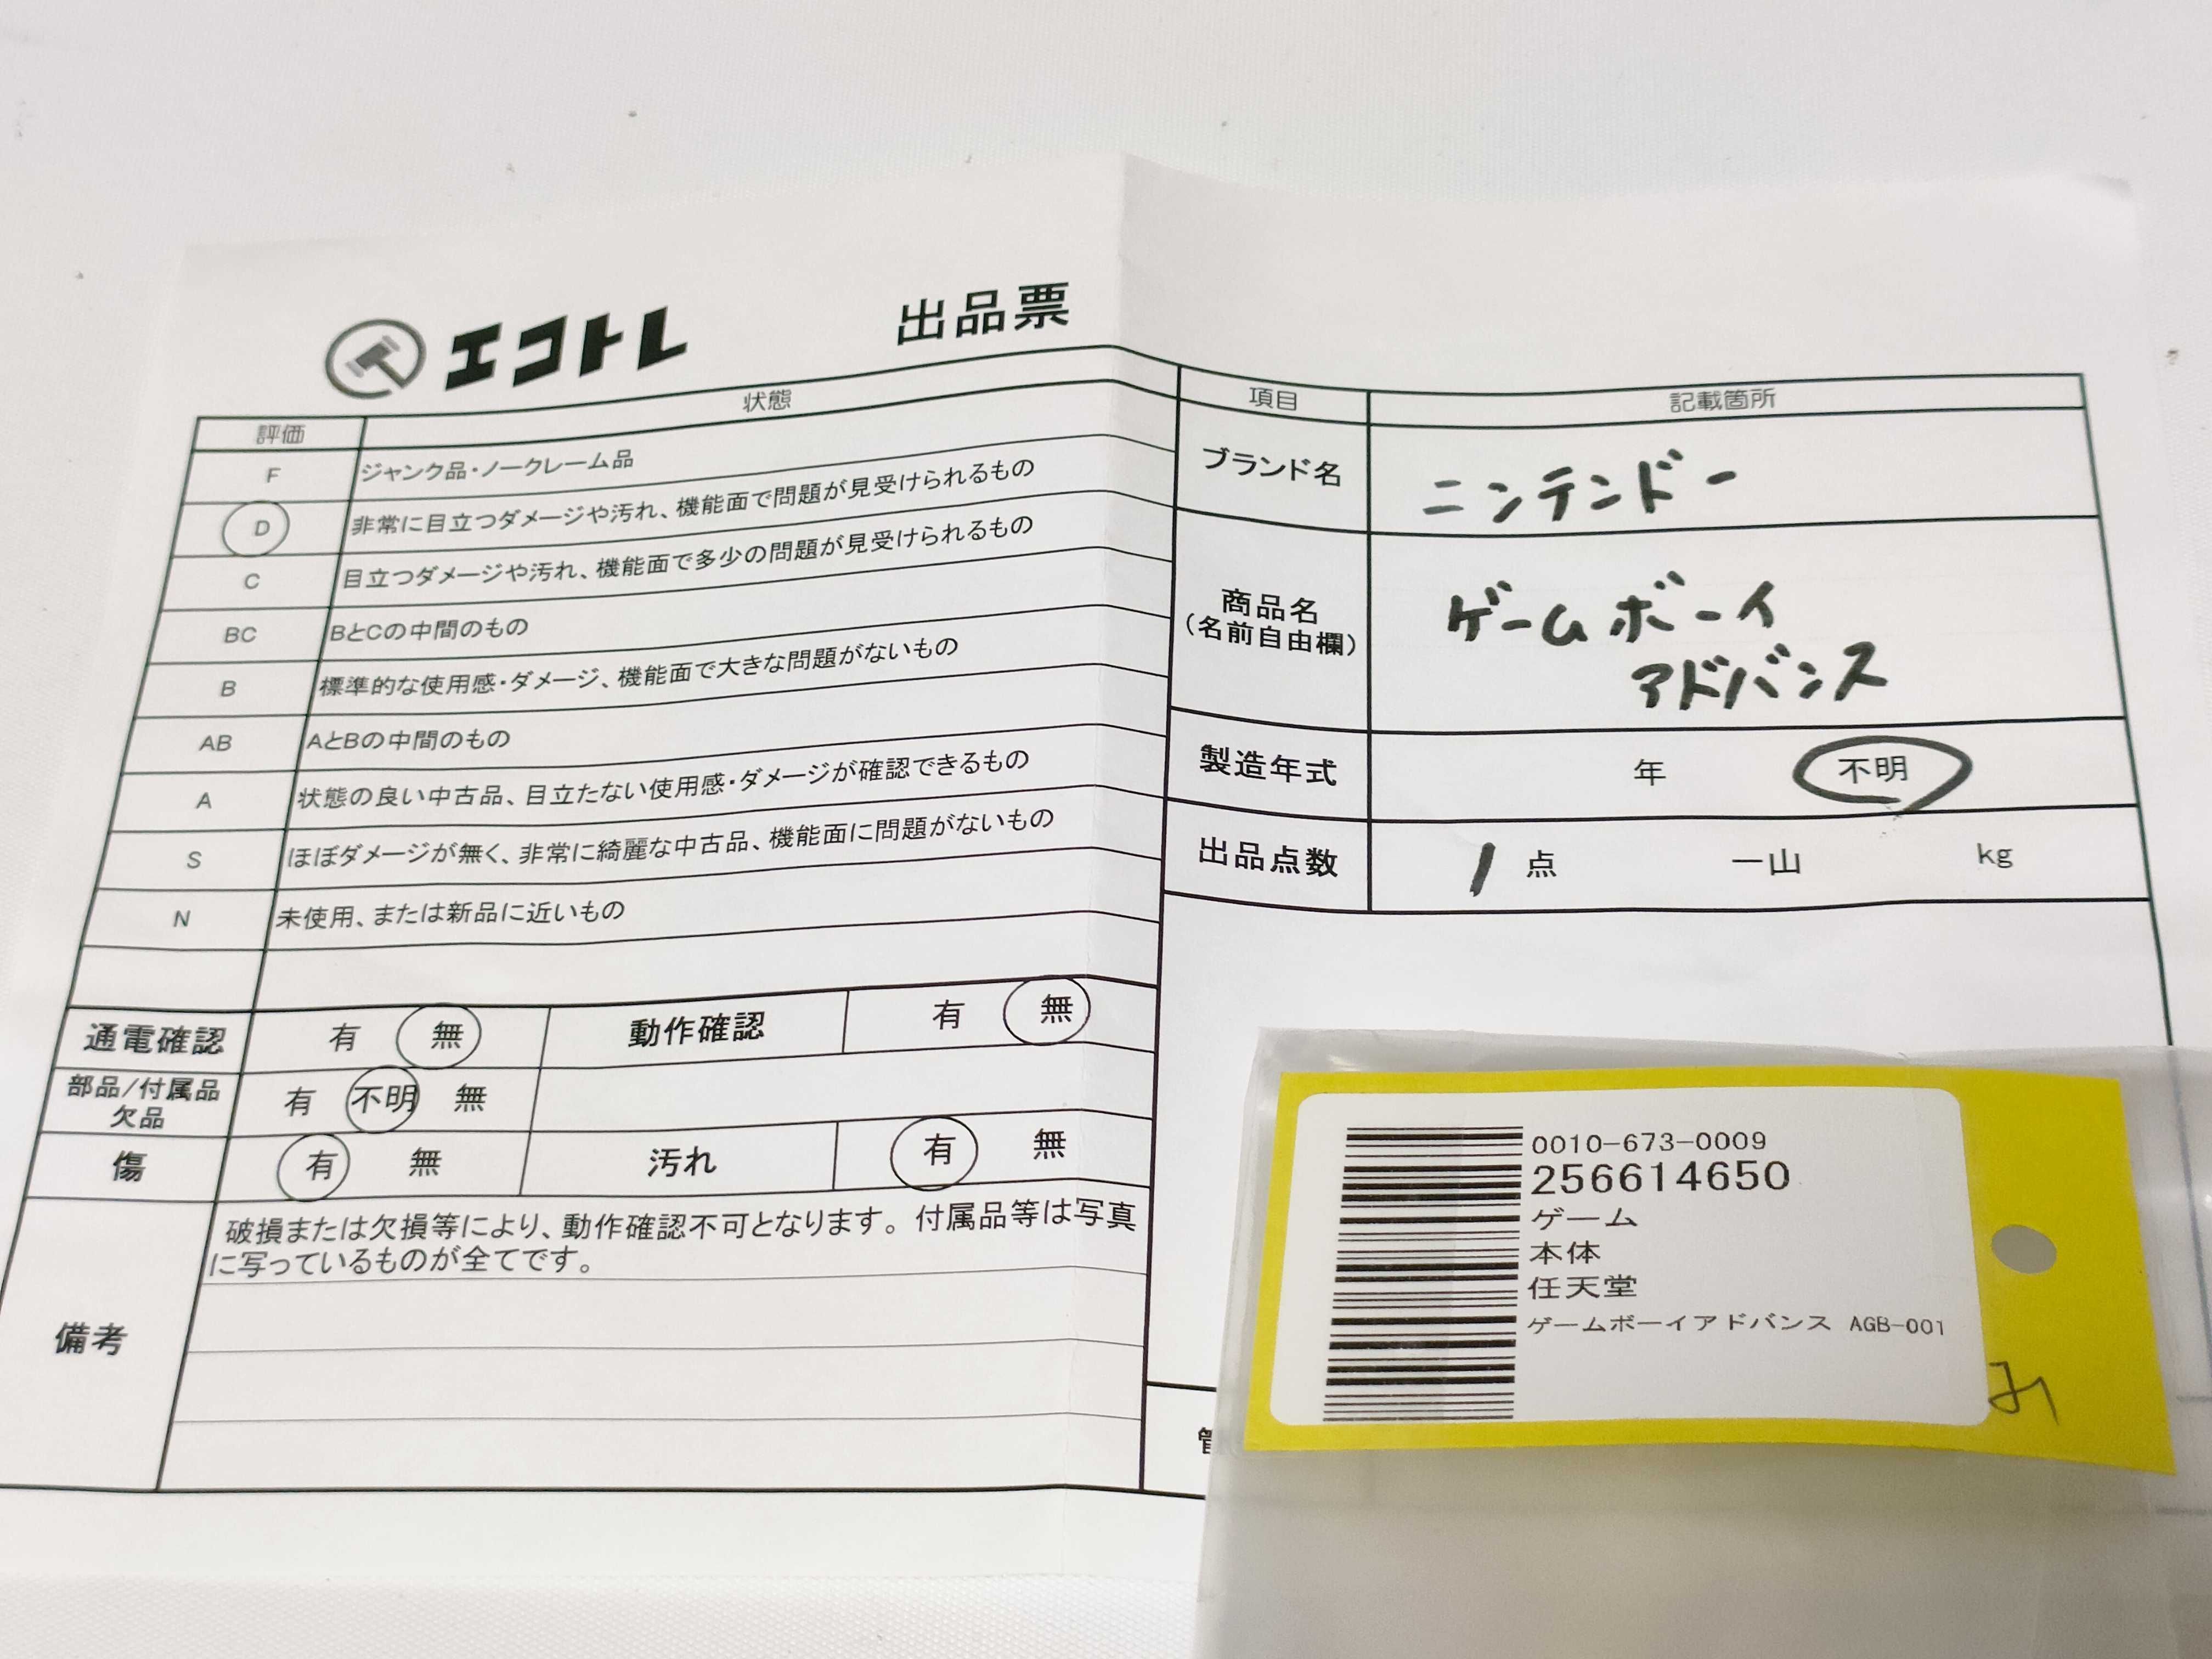 エコトレ
出品票
評価 状態
F ジャンク品・ノークレーム品
D 非常に目立つダメージや汚れ、機能面で問題が見受けられるもの
C 目立つダメージや汚れ、機能面で多少の問題が見受けられるもの
BC BとCの中間のもの
B 標準的な使用感・ダメージ、機能面で大きな問題がないもの
AB AとBの中間のもの
A 状態の良い中古品、目立たない使用感・ダメージが確認できるもの
S ほぼダメージが無く、非常に綺麗な中古品、機能面に問題がないもの
N 未使用、または新品に近いもの
通電確認 有 無 動作確認 有 無
部品/付属品
欠品
有 不明 無
傷 有 無 汚れ 有 無
備考
破損または欠損等により、動作確認不可となります。付属品等は写真
に写っているものが全てです。
項目 記載箇所
ブランド名 ニンテンドー
商品名
(名前自由欄)
ゲームボーイ
アドバンス
製造年式 年 不明
出品点数 1 点 一山 kg
0010-673-0009
256614650
ゲーム
本体
任天堂
ゲームボーイアドバンス AGB-001